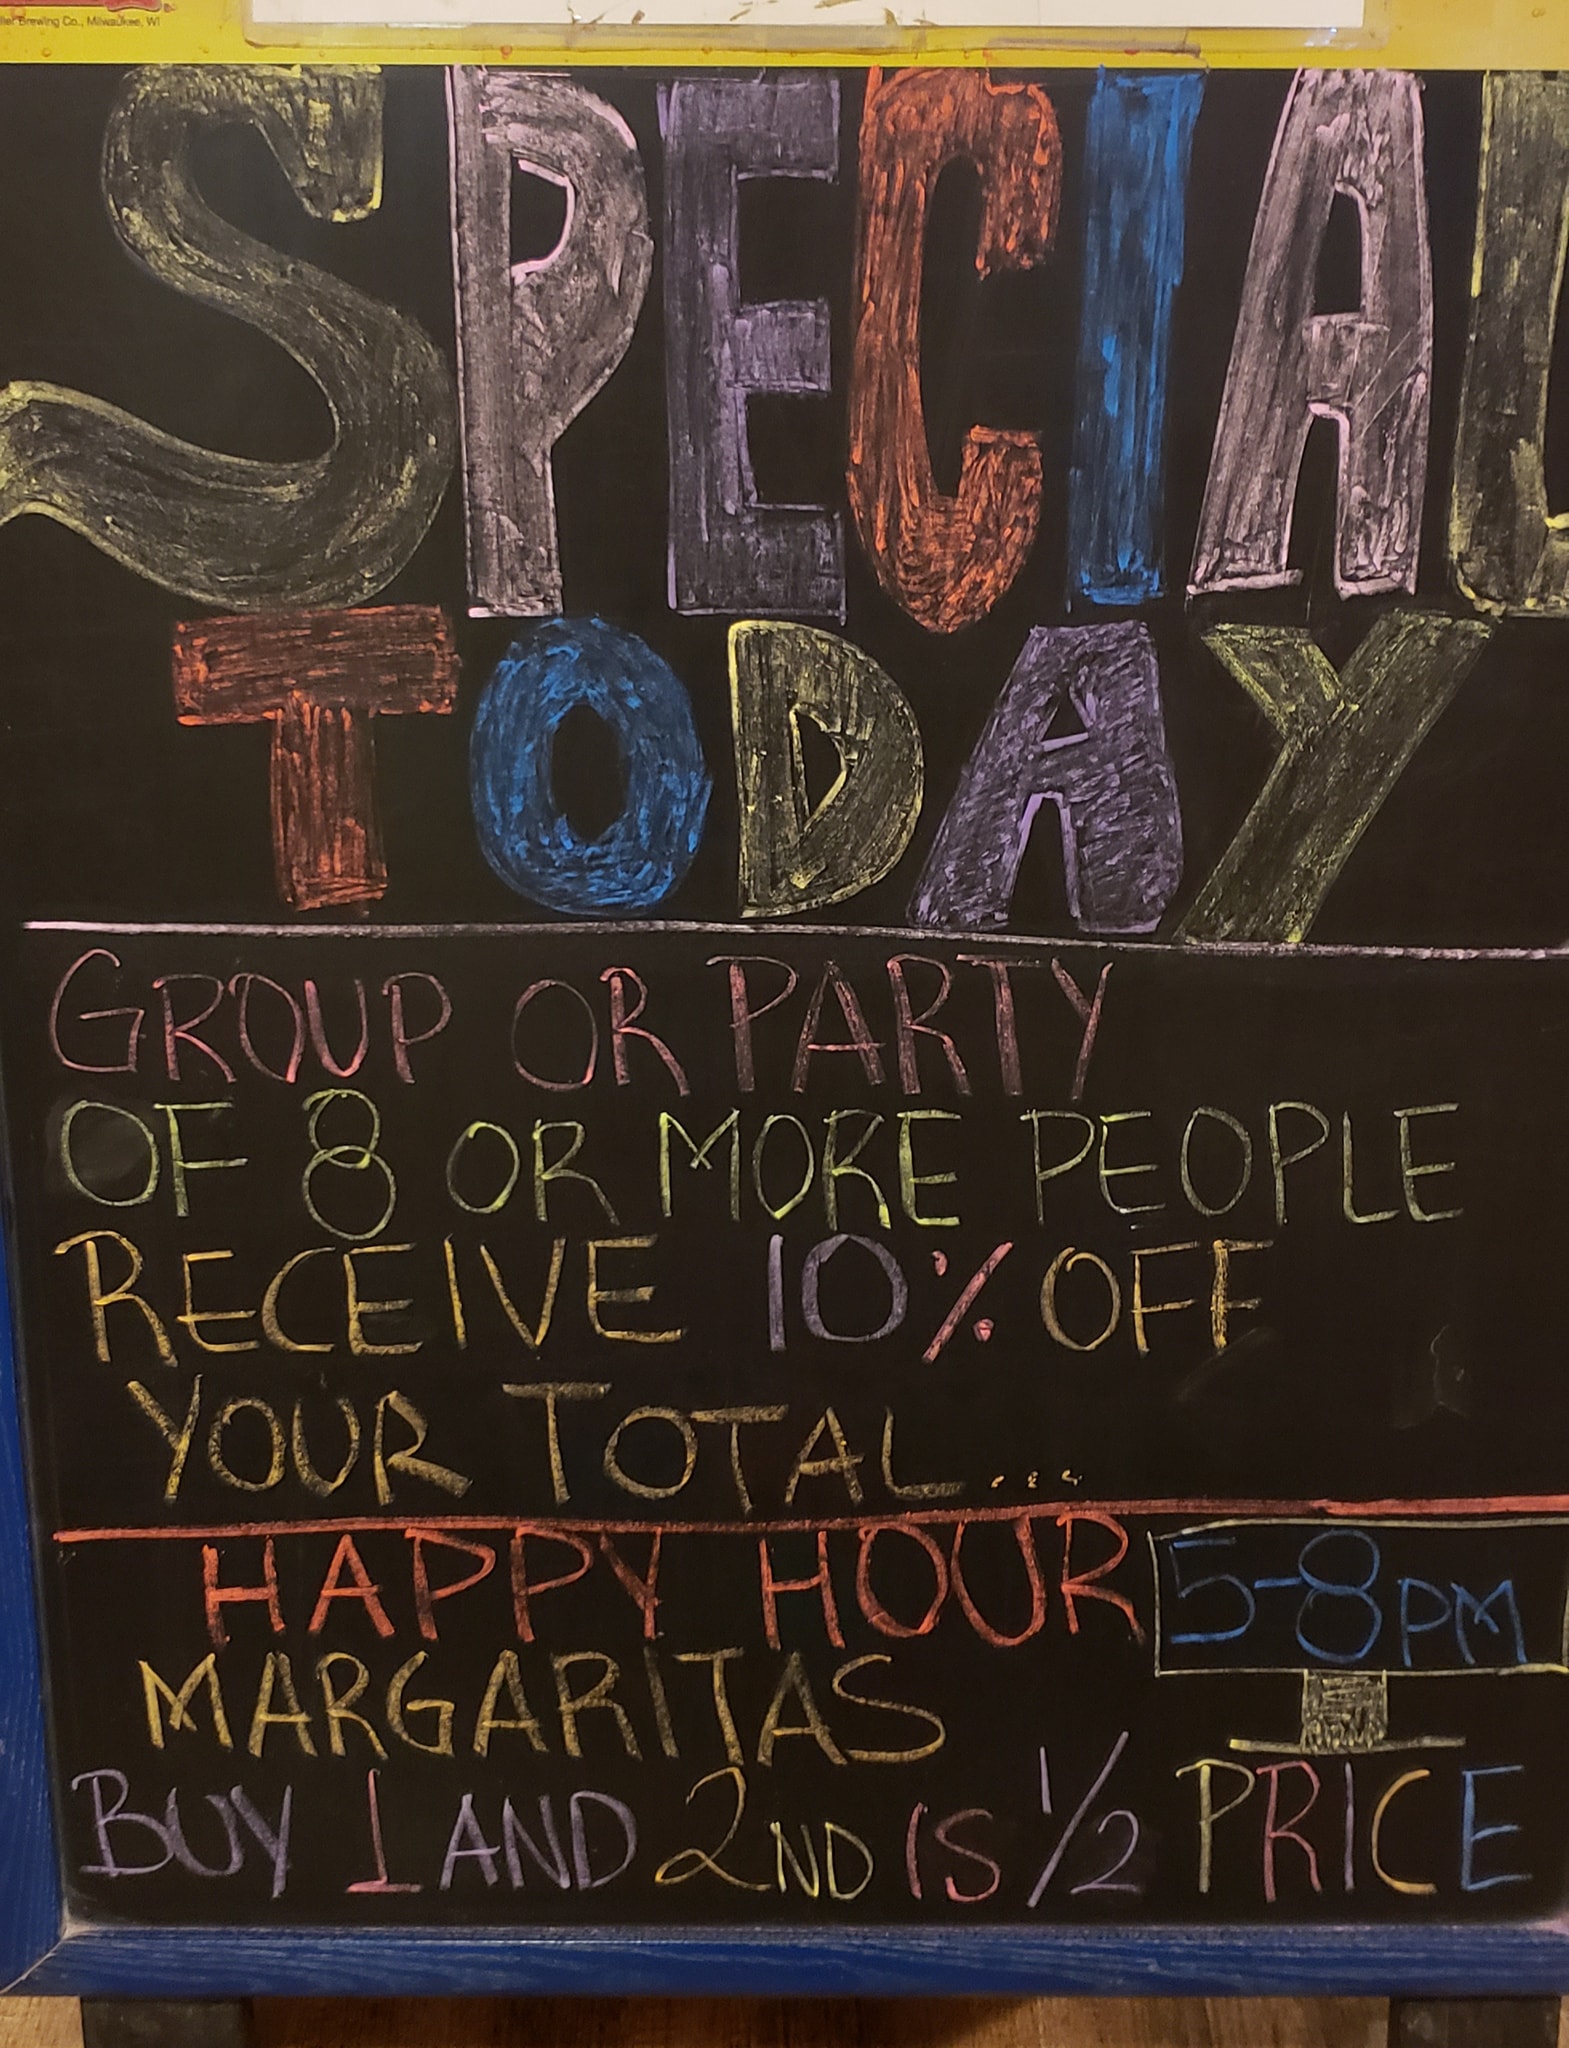 Brewing Co., Milwaukee, WI
SPECIAL
TODAY
GROUP OR PARTY
OF 8 OR MORE PEOPLE
RECEIVE 10% OFF
YOUR TOTAL...
HAPPY HOUR 5-8PM
MARGARITAS
BUY 1 AND 2ND IS 1/2 PRICE